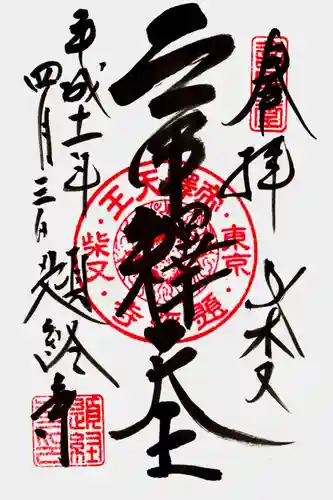 奉拝
柴又
帝釋天王
平成十一年
四月三日
題経寺
帝釋天王
東京
柴又
題経寺